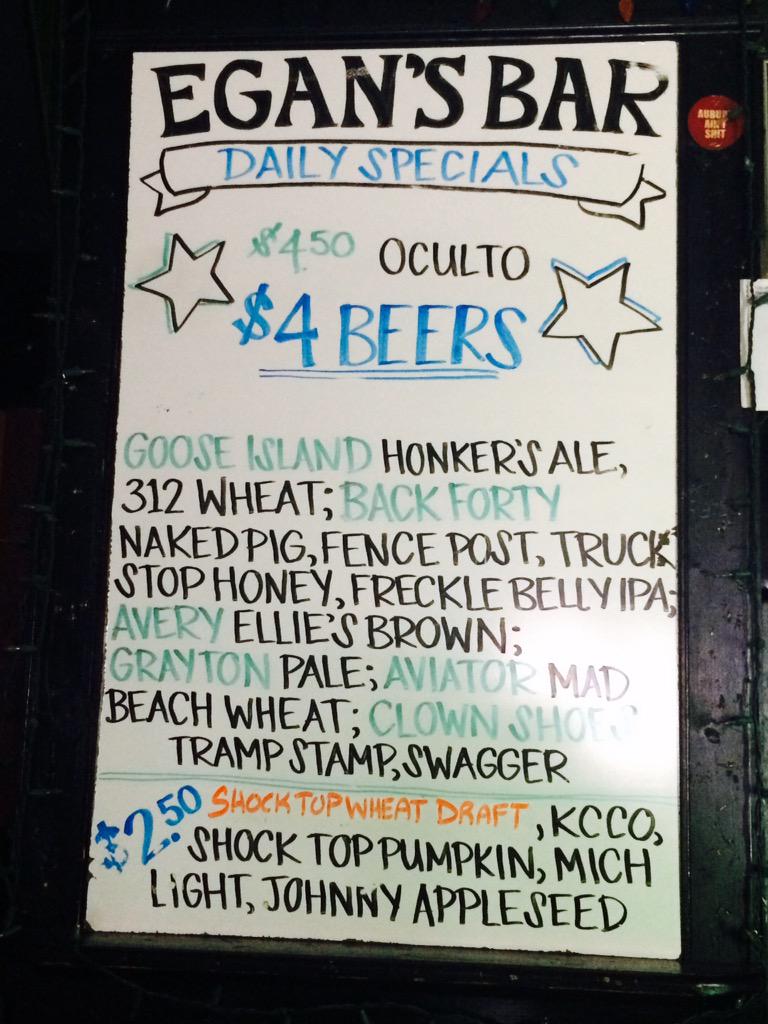 EGAN'S BAR
DAILY SPECIALS
$4.50 OCULTO
$4 BEERS
GOOSE ISLAND HONKER'S ALE,
312 WHEAT; BACK FORTY
NAKED PIG, FENCE POST, TRUCK
STOP HONEY, FRECKLE BELLY IPA;
AVERY ELLIE'S BROWN;
GRAYTON PALE; AVIATOR MAD
BEACH WHEAT; CLOWN SHOES
TRAMP STAMP, SWAGGER
$2.50 SHOCK TOP WHEAT DRAFT, KCCO,
SHOCK TOP PUMPKIN, MICH
LIGHT, JOHNNY APPLESEED
AUBURN
AIN'T
SHIT